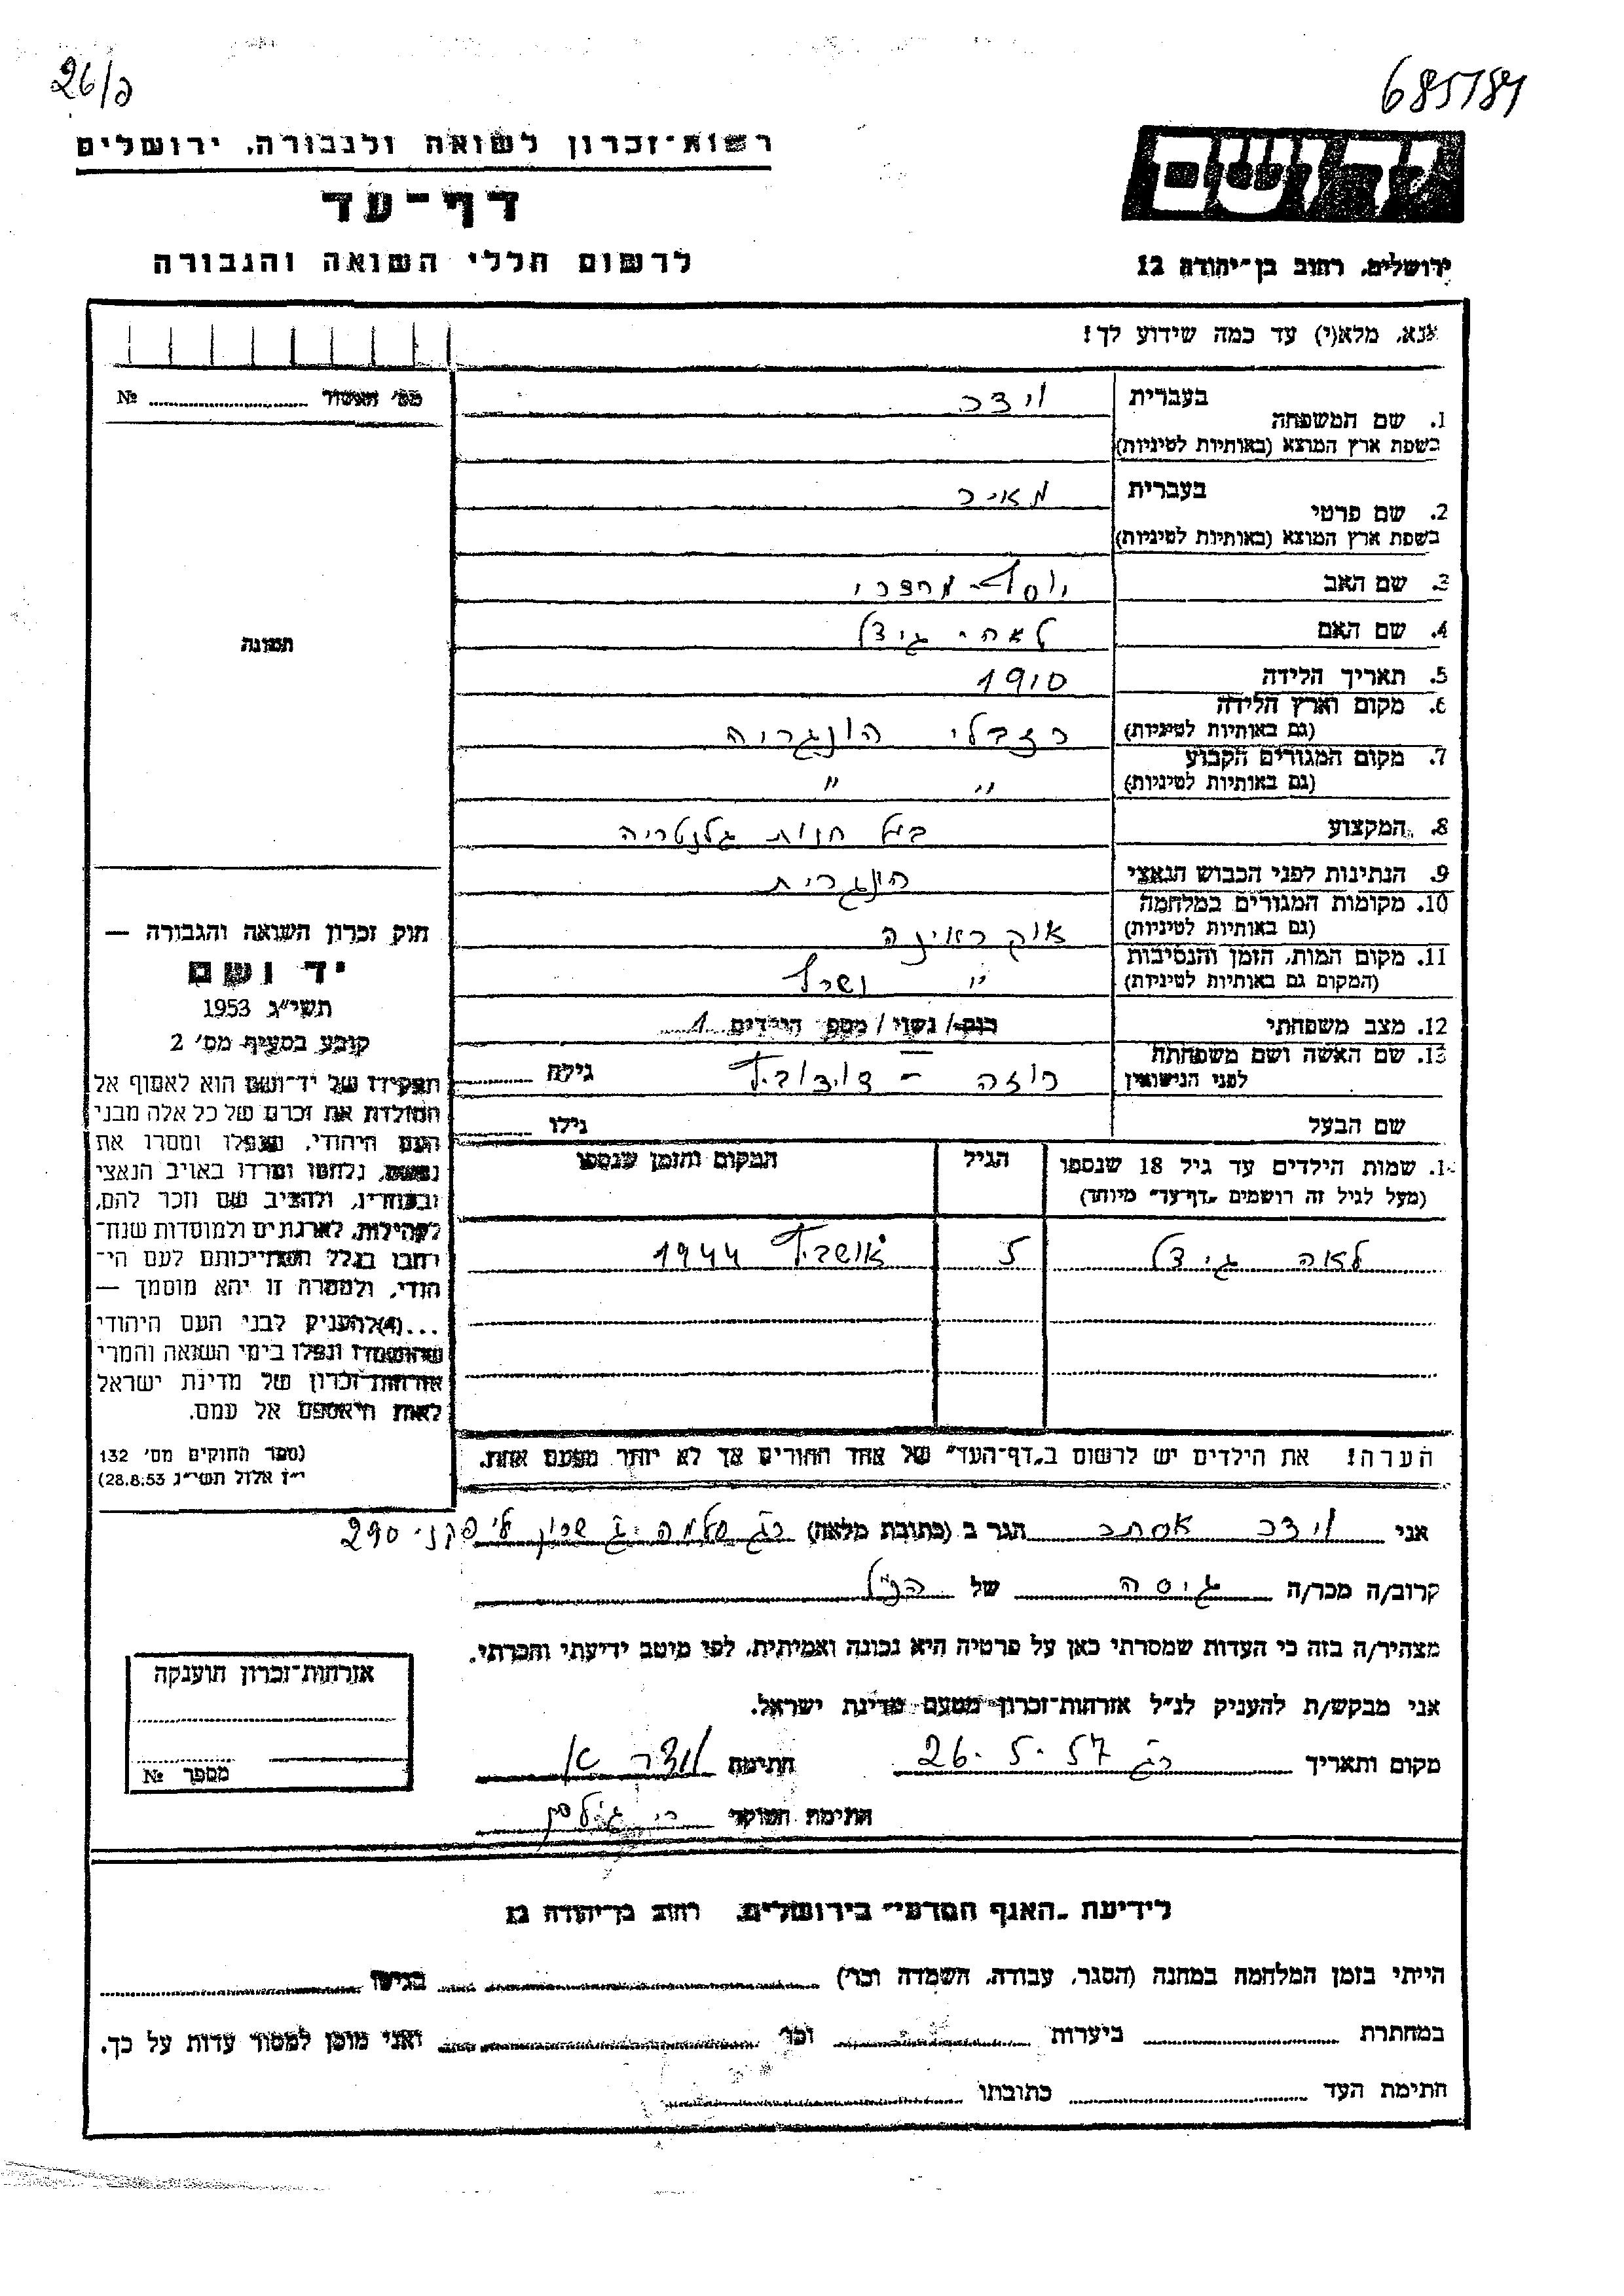 26/ם
685/89
רשות-זכרון לשואה ולגבורה, ירושלים
יד ושם
דף-עד
לרשום חללי השואה והגבורה
ירושלים, רחוב בן-יהודה 12
אנא, מלא(י) עד כמה שידוע לך!
מס' האשור ........ №
1. שם המשפחה
בעברית וידר
בשפת ארץ המוצא (באותיות לטיניות)
2. שם פרטי
בעברית מאיר
בשפת ארץ המוצא (באותיות לטיניות)
3. שם האב יוסף
4. שם האם גיצל
5. תאריך הלידה 1910
6. מקום וארץ הלידה
(גם באותיות לטיניות) הונגריה
7. מקום המגורים הקבוע
(גם באותיות לטיניות) " "
8. המקצוע חנות גלנטריה
9. הנתינות לפני הכבוש הנאצי הונגרית
10. מקומות המגורים במלחמה
(גם באותיות לטיניות) אוקראינה
11. מקום המות, הזמן והנסיבות
(המקום גם באותיות לטיניות) " נשרף
12. מצב משפחתי רוק / נשוי / מספר הילדים 1
13. שם האשה ושם משפחתה
לפני הנישואין רוזה – גילה
שם הבעל גילו
14. שמות הילדים עד גיל 18 שנספו
(מעל לגיל זה רושמים "דף-עד" מיוחד)
הגיל
המקום והזמן שנספו
לאה גיצל 5 אושביץ 1944
הערה! את הילדים יש לרשום ב"דף-העד" של אחד ההורים אך לא יותר מפעם אחת.
תמונה
חוק זכרון השואה והגבורה —
יד ושם
תשי"ג 1953
קובע בסעיף מס' 2
תפקידו של יד-ושם הוא לאסוף אל
המולדת את זכרם של כל אלה מבני
העם היהודי, שנפלו ומסרו את
נפשם, נלחמו ומרדו באויב הנאצי
ובעוזריו, ולהציב שם וזכר להם,
לקהילות, לארגונים ולמוסדות שנח-
רבו בגלל השתייכותם לעם הי-
הודי, ולמטרה זו יהא מוסמך —
...(4) להעניק לבני העם היהודי
שהושמדו ונפלו בימי השואה והמרי
אזרחות-זכרון של מדינת ישראל
לאות היאספם אל עמם.
(ספר החוקים מס' 132
י"ז אלול תשי"ג 28.8.53)
אני וידר אסתר הגר ב (כתובת מלאה) 290
קרוב/ה מכר/ה גיסה של הנ"ל
מצהיר/ה בזה כי העדות שמסרתי כאן על פרטיה היא נכונה ואמיתית, לפי מיטב ידיעתי והכרתי.
אני מבקש/ת להעניק לנ"ל אזרחות-זכרון מטעם מדינת ישראל.
מקום ותאריך רג 26.5.57 חתימה וידר א
חתימת הפוקד
אזרחות-זכרון הוענקה
מספר №
לידיעת "האגף המדעי" בירושלים, רחוב בן-יהודה 12
הייתי בזמן המלחמה במחנה (הסגר, עבודה, השמדה וכו') בגיטו
במחתרת ביערות וכו' ואני מוכן למסור עדות על כך.
חתימת העד כתובתו